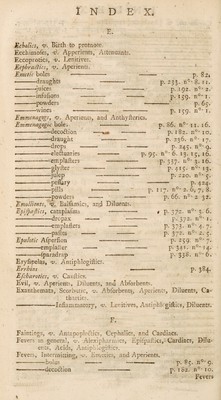 INDEX.
E.
Ecbolics, v. Birth to promote.
Ecchinomes, v. Apperients, Attenuants.
Eccoprotics, v. Lenitives.
Ecphractics, v. Aperients.
Emetic boles p. 82.
—draughts p. 233. n°. 8. 11.
—juices p. 192. n°. 2.
—infusions p. 159. n°. 1.
—powders p. 65.
—wines p. 159. n°. 1.
Emmenagogs, v. Aperients, and Anthysterics.
Emmenagogic boles p. 86. n°. 11. 16.
—decoction p. 182. n°. 10.
—draughts p. 236. n°. 17.
—drops p. 245. n°. 9.
—electuaries p. 95. n°. 6. 13. 15. 16.
—emplasters p. 337. n°. 3. 16.
—glyster p. 415. n°. 13.
—julep p. 220. n°. 5.
—pessary p. 424.
—pills p. 117. n°. 2. 6. 7. 8.
—powders p. 66. n°. 2. 32.
Emollients, v. Balsamics, and Diluents.
Epispastics, cataplasms p. 372. n°. 5. 6.
—dropax p. 372. n°. 1.
—emplasters p. 373. n°. 4. 7.
—pastes p. 370. n°. 2. 5.
Epulotic Aspersion p. 259. n°. 7.
—emplaster p. 341. n°. 14.
—sparadrap p. 338. n°. 6.
Erysipelas, v. Antiphlogistics.
Errhins p. 384.
Escharotics, v. Caustics.
Evil, v. Aperients, Diluents, and Absorbents.
Exanthemata, Scorbutic, v. Absorbents, Aperients, Diluents, Cathartics.
—Inflammatory, v. Lenitives, Antiphlogistics, Diluents.
F.
Faintings, v. Antapoplectics, Cephalics, and Cardiacs.
Fevers in general, v. Alexipharmics, Epispastics, Cardiacs, Diluents, Acids, Antiphlogistics.
Fevers, Intermitting, v. Emetics, and Aperients.
—bolus p. 85. n°. 9.
—decoction p. 182. n°. 10.
Fevers